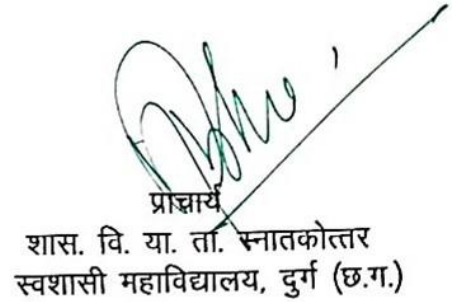 प्राचार्य
शास. वि. या. ता. स्नातकोत्तर
स्वशासी महाविद्यालय, दुर्ग (छ.ग.)